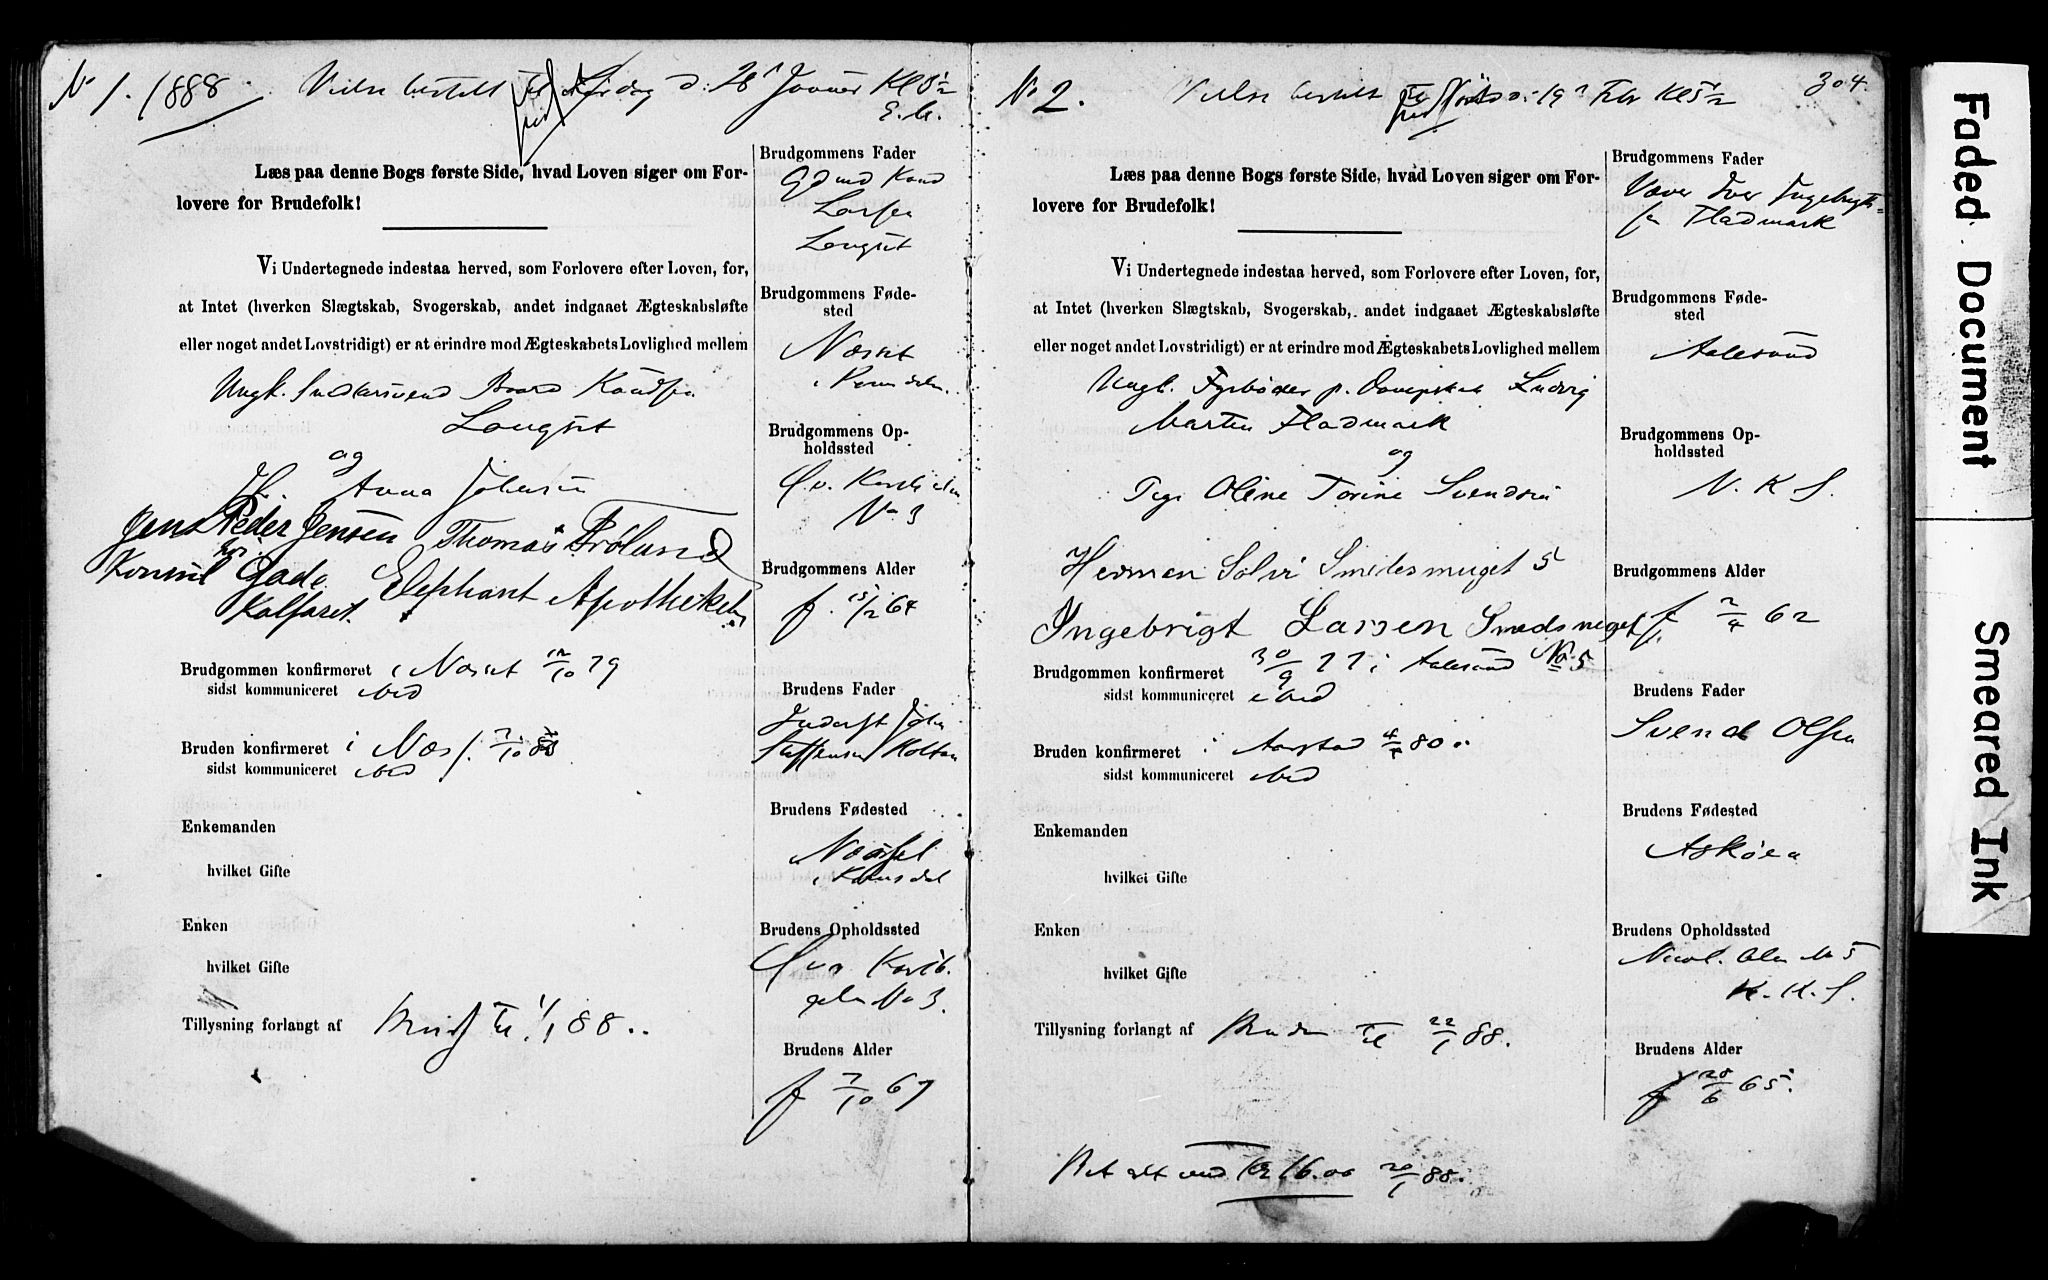 No 1. 1888. Vielse bestilt til Lørdag d: 28 Januar Kl 8 1/2
E. M.
Læs paa denne Bogs første Side, hvad Loven siger om For-
lovere for Brudefolk!
Vi Undertegnede indestaa herved, som Forlovere efter Loven, for,
at Intet (hverken Slægtskab, Svogerskab, andet indgaaet Ægteskabsløfte
eller noget andet Lovstridigt) er at erindre mod Ægteskabets Lovlighed mellem
Ungk. Baard Knudsen
Langset
og
Anna Johnsen
Jens Peder Jensen Thomas Frølund
Konsul Gade Elephant Apotheket
Kalfaret.
Brudgommen konfirmeret i Næsset 12/10 79
sidst kommuniceret
Bruden konfirmeret i Næss. 7/10
sidst kommuniceret
Enkemanden
hvilket Gifte
Enken
hvilket Gifte
Tillysning forlangt af Brudg til 1/1 88.
Brudgommens Fader
Gdmd Knud
Larsen
Langset
Brudgommens Føde-
sted
Næsset
i Romsdalen
Brudgommens Op-
holdssted
No 3
Brudgommens Alder
f. 15/12 64
Brudens Fader
Inderst John
Steffensen
Brudens Fødested
Næsset
i Romsdal
Brudens Opholdssted
No 3.
Brudens Alder
f 7/10 67
304.
No 2. Vielse bestilt til d: 19 Febr Kl 5 1/2
Læs paa denne Bogs første Side, hvad Loven siger om For-
lovere for Brudefolk!
Vi Undertegnede indestaa herved, som Forlovere efter Loven, for,
at Intet (hverken Slægtskab, Svogerskab, andet indgaaet Ægteskabsløfte
eller noget andet Lovstridigt) er at erindre mod Ægteskabets Lovlighed mellem
Ungk. Fyrbøder p. Dampskib Ludvig
Martin Fladmark
og
Pige Oline Torine Svendsen
Herman Solvi Smedesmuget 5
Ingebrigt Larsen Smedsmuget
No 5
Brudgommen konfirmeret 30/9 77 i Aalesund
sidst kommuniceret
Bruden konfirmeret i Aarstad 80
sidst kommuniceret
Enkemanden
hvilket Gifte
Enken
hvilket Gifte
Tillysning forlangt af Bruden til 22/1 88.
Betalt med Kr 16.00 20/1 88.
Brudgommens Fader
Væver Iver Ingebrigt-
sen Fladmark
Brudgommens Føde-
sted
Aalesund
Brudgommens Op-
holdssted
N. K. S.
Brudgommens Alder
f 2/4 62
Brudens Fader
Svend Olsen
Brudens Fødested
Askøen
Brudens Opholdssted
No 5
N. K. S.
Brudens Alder
f 28/6 65.
Faded Document
Smeared Ink